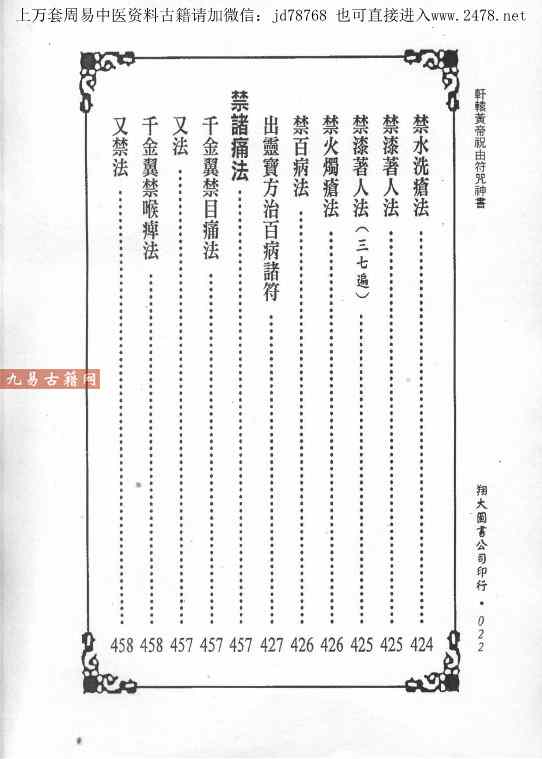 上万套周易中医资料古籍请加微信：jd78768 也可直接进入www.2478.net
軒轅黃帝祝由符咒神書
禁水洗瘡法 424
禁漆著人法 425
禁漆著人法（三七遍） 425
禁火燭瘡法 426
禁百病法 426
出靈寶方治百病諸符 427
禁諸痛法 457
千金翼禁目痛法 457
又法 457
千金翼禁喉痺法 458
又禁法 458
九易古籍网
翔大圖書公司印行・022